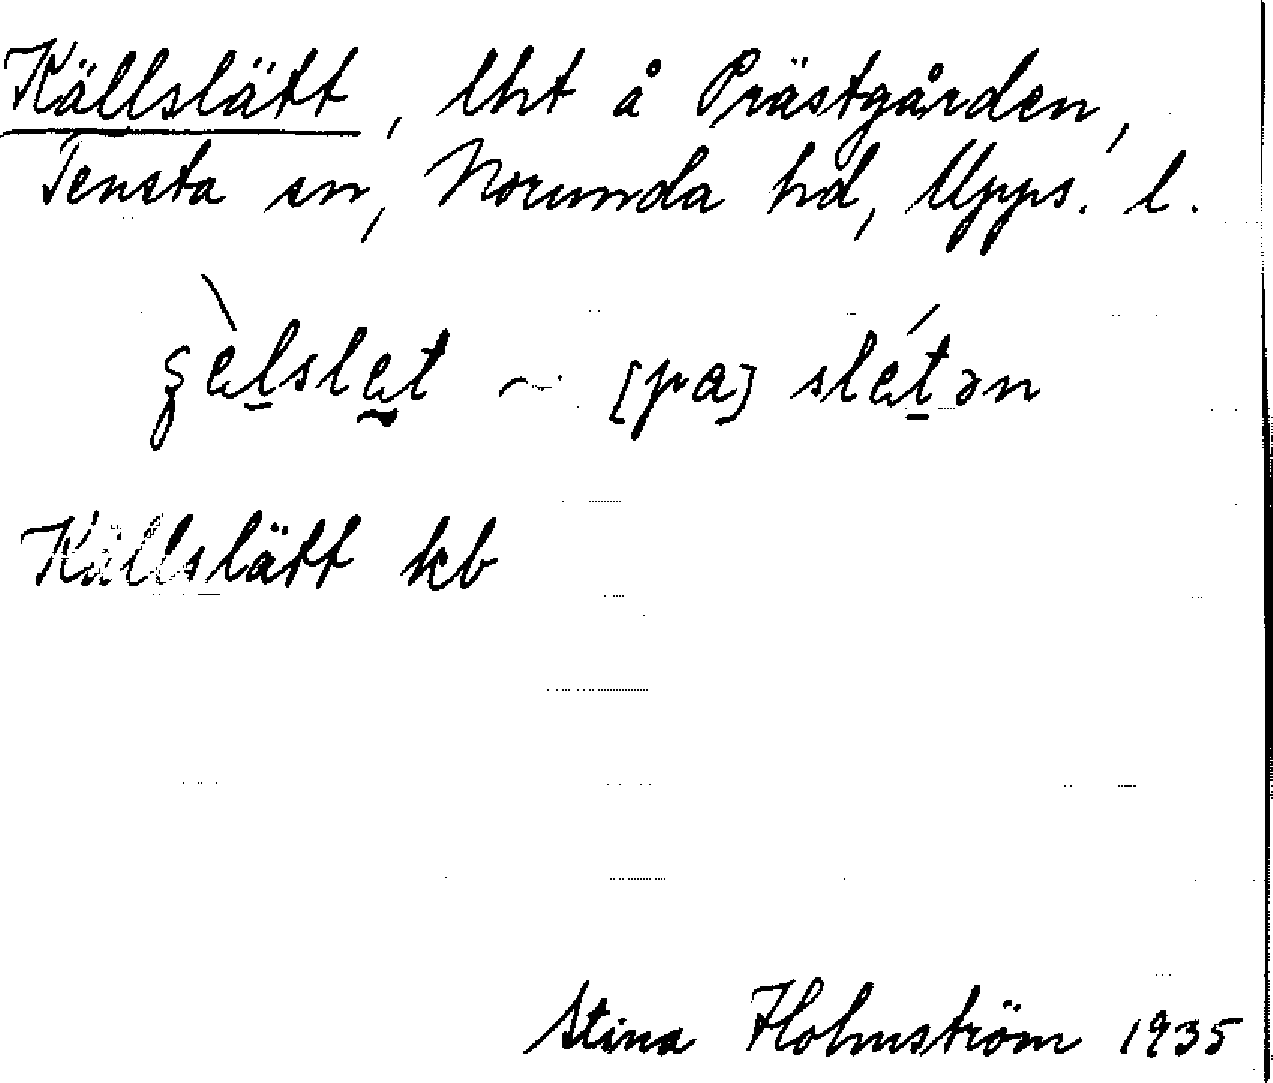 Källslätt, lht å Prästgården,
Tensta sn, Norunda hd, Upps. l.
ʂɛ̀l̠slɛt ~ [pa] slɛ́t̠ən
Källslätt kb
Stina Holmström 1935